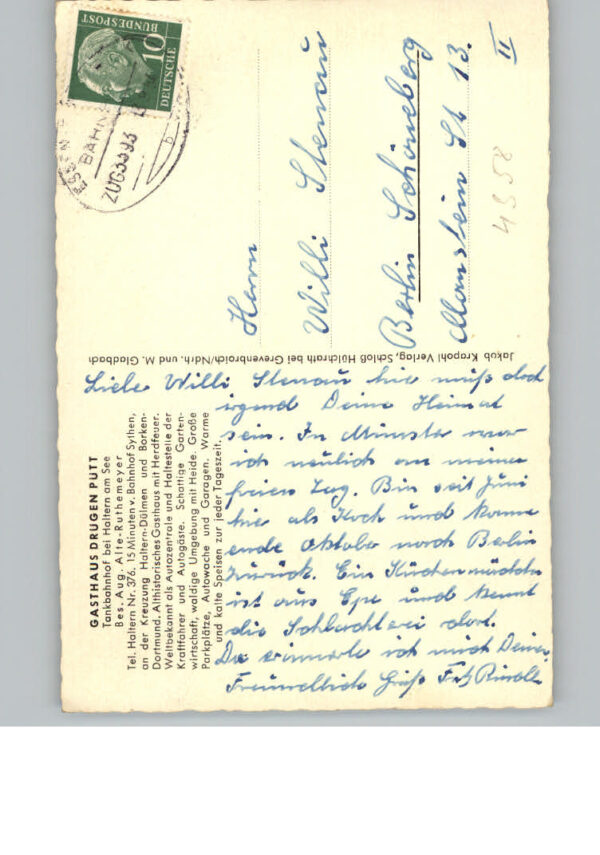 GASTHAUS DRÜGEN PÜTT
Tankbahnhof bei Haltern am See
Bes. Aug. Alte-Ruthemeyer
Tel. Haltern Nr. 376. 15 Minuten v. Bahnhof Sythen,
an der Kreuzung Haltern-Dülmen und Borken-
Dortmund. Althistorisches Gasthaus mit Herdfeuer.
Weltbekannt als Autozentrale und Haltestelle der
Kraftfahrer und Autogäste. Schattige Garten-
wirtschaft, waldige Umgebung mit Heide. Große
Parkplätze, Autowache und Garagen. Warme
und kalte Speisen zur jeder Tageszeit.
Liebe Willi Stenau hie muß doch
irgend Deine Heimat
sein. In Münster war
ich neulich an meinen
freien Tag. Bin seit Juni
hie als Koch und komme
ende Oktober nach Berlin
zurück. Ein Küchenmädchen
ist aus Epe und kennt
die Schlachterei dort.
Da erinnerte ich mich Deiner
Freundlich Gruß
Jakob Kropohl Verlag, Schloß Hülchrath bei Grevenbroich/Ndrh. und M. Gladbach
DEUTSCHE
BUNDESPOST
10
BAHN
ZUG3393
b
Herrn
Willi Stenau
Berlin Schöneberg
Manstein St 13.
II